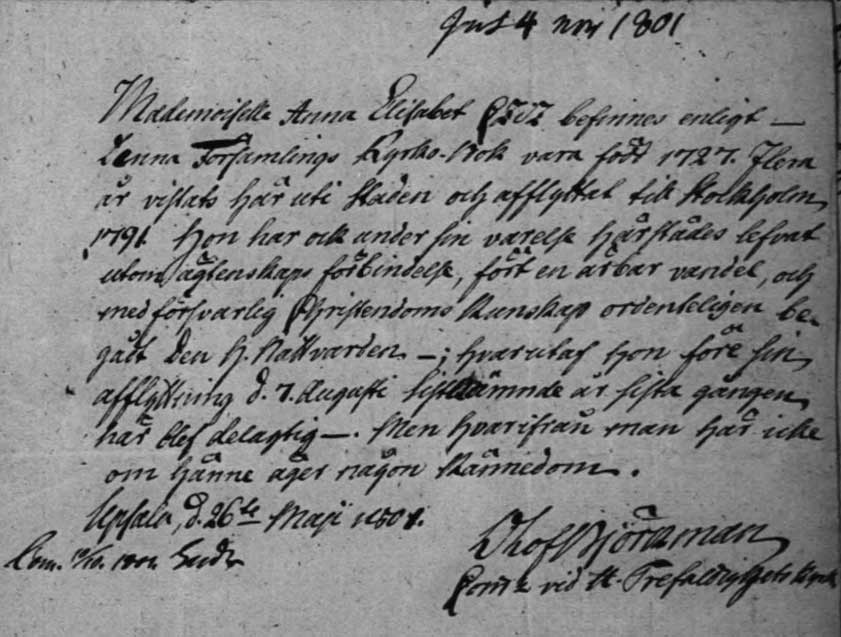 4 nov 1801
Mademoiselle Anna Elisabet befinnes enligt —
Denna Församlings Kyrko-Bok vara född 1727. Flera
år vistats här uti Staden och afflyttat till Stockholm
1791. Hon har ock under sin varelse härstädes lefvat
utom ägtenskaps förbindelse, fört en ärbar vandel, och
med försvarlig Christendoms Kunskap ordenteligen be-
gått den H. Nattvarden —; hvarutaf hon före sin
afflyttning d. 7. Augusti sistnämnde år sista gången
här blef delagtig —. Men hvarifrån man här icke
om hänne äger någon Kännedom.
Upsala, d. 26te Maji 1801.
Olof Björkman
vid H. Trefaldighets Kyrk